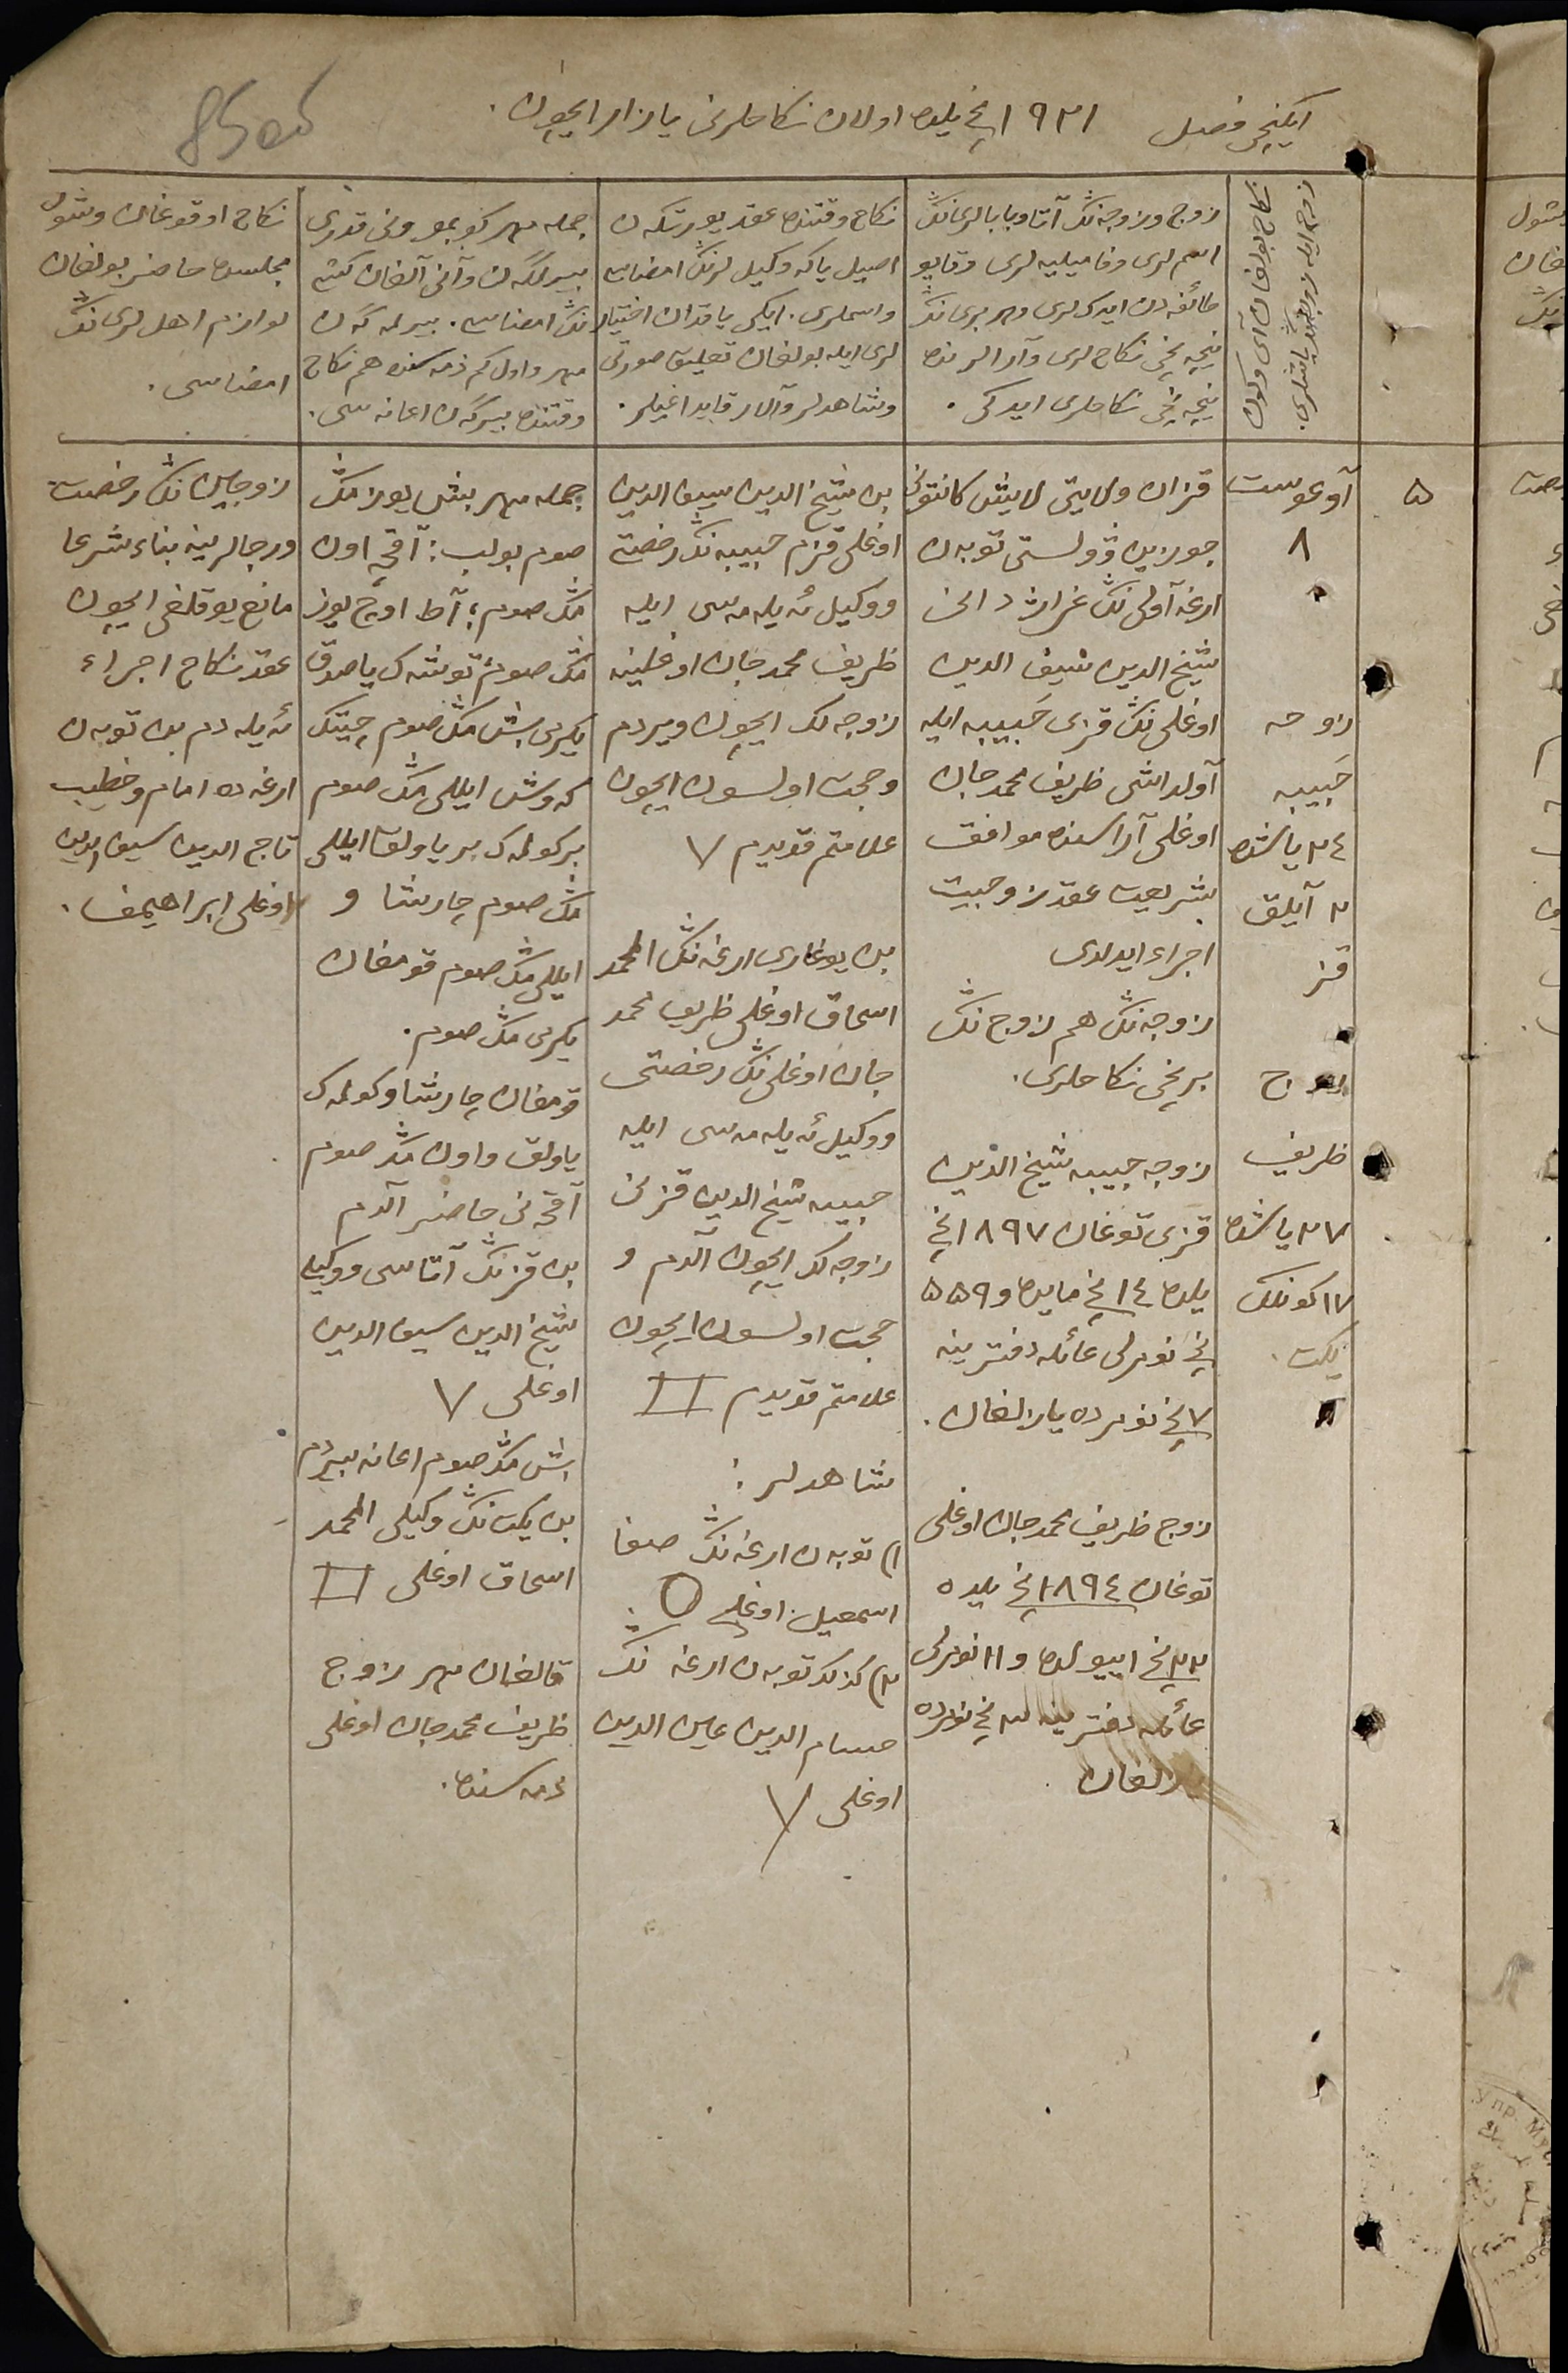 ایکنچی فصل ١٩٢١ نچی یلده اولان نکاحلرنی یازار ایچون.
زوج وزوجه‌نڭ آتا وبابالری‌نڭ
اسم لری وفامیلیه لری وقایو
طائفه دن ایدکلری وهر بری‌نڭ
نیچه نچی نکاح لری وآرالرنده
نیچه نچی نکاحلری ایدکی.
نکاح وقتنده عقد یورتکەن
اصیل یاکه وکیل لرنڭ امضاسی
واسملری. ایکی یاقدان اختیار
لری ایله بولغان تعلیق صورتی
وشاهدلر وآلار قایداغیلر.
جمله مهر کوبمو ونی قدری
بیرلگەن وآنی آلغان کشی
نڭ امضاسی. بیرلمەگەن
مهر واول کم ذمه‌سنده هم نکاح
وقتنده بیرگەن اعانه سی.
نکاح اوقوغان وشول
مجلسده حاضر بولغان
لوازم اهل لری‌نڭ
امضاسی.
٥
آوغوست
٨
زوجه
حَبیبه
٢٤ یاشده
٢ آیلق
قز
زوج
ظریف
٢٧ یاشده
١٧ کونلک
یکت.
قزان ولایتی لایش کانتونی
جورین ڤولستی توبەن
ارغه آولی‌نڭ
شیخ الدین سیف الدین
اوغلی‌نڭ قزی حَبیبه ایله
آولداشی ظریف محمدجان
اوغلی آراسنده موافق
شریعت عقد زوجیت
اجراء ایدلدی
زوجه‌نڭ هم زوج‌نڭ
برنچی نکاحلری.
زوجه حبیبه شیخ الدین
قزی توغان ١٨٩٧ نچی
یلده ١٤ نچی مایده و ٥٥٩
نچی نومرلی عائله دفترینه
٧ نچی نومرده یازلغان.
زوج ظریف محمدجان اوغلی
توغان ١٨٩٤ نچی یلده
٢٢ نچی اییولده و ١١ نومرلی
عائله دفترینه نچی نومرده
یازلغان.
بن شیخ الدین سیف الدین
اوغلی قزم حبیبه‌نڭ رخصتی
ووکیل ئەیلەمەسی ایله
ظریف محمدجان اوغلینه
زوجه لک ایچون ویردم
وحجت اولسون ایچون
علامتم قویدم ٧
بن یوغاری ارغه‌نڭ المحمد
اسحاق اوغلی ظریف محمد
جان اوغلی‌نڭ رخصتی
ووکیل ئەیلەمەسی ایله
حبیبه شیخ الدین قزنی
زوجه لک ایچون آلدم و
حجت اولسون ایچون
علامتم قویدم
شاهدلر:
١) توبەن ارغه‌نڭ صفا
اسمعیل اوغلی
٢) کذلک توبەن ارغه‌نڭ
حسام الدین عین الدین
اوغلی ٧
جمله مهر بش یوز مڭ
صوم بولب: آقچه اون
مڭ صوم؛ آط اوچ یوز
مڭ صوم؛ توشەک یاصدق
یکرمی بش مڭ صوم چیتک
کەوش ایللی مڭ صوم
بر کولمەک بر یاولق ایللی
مڭ صوم چارشا و
ایللی مڭ صوم قومغان
یکرمی مڭ صوم.
قومغان چارشاو کولمەک
یاولق واون مڭ صوم
آقچه‌نی حاضر آلدم
بن قزنڭ آتاسی ووکیلی
شیخ الدین سیف الدین
اوغلی ٧
بش مڭ صوم اعانه بیردم
بن یکت‌نڭ وکیلی المحمد
اسحاق اوغلی
قالغان مهر زوج
ظریف محمدجان اوغلی
ذمه سنده.
زوجین‌نڭ رخصت
ورجالرینه بناء شرعا
مانع یوقلغی ایچون
عقد نکاح اجراء
ئەیلەدم بن توبەن
ارغه‌ده امام وخطیب
تاج الدین سیف الدین
اوغلی ابراهیمف.